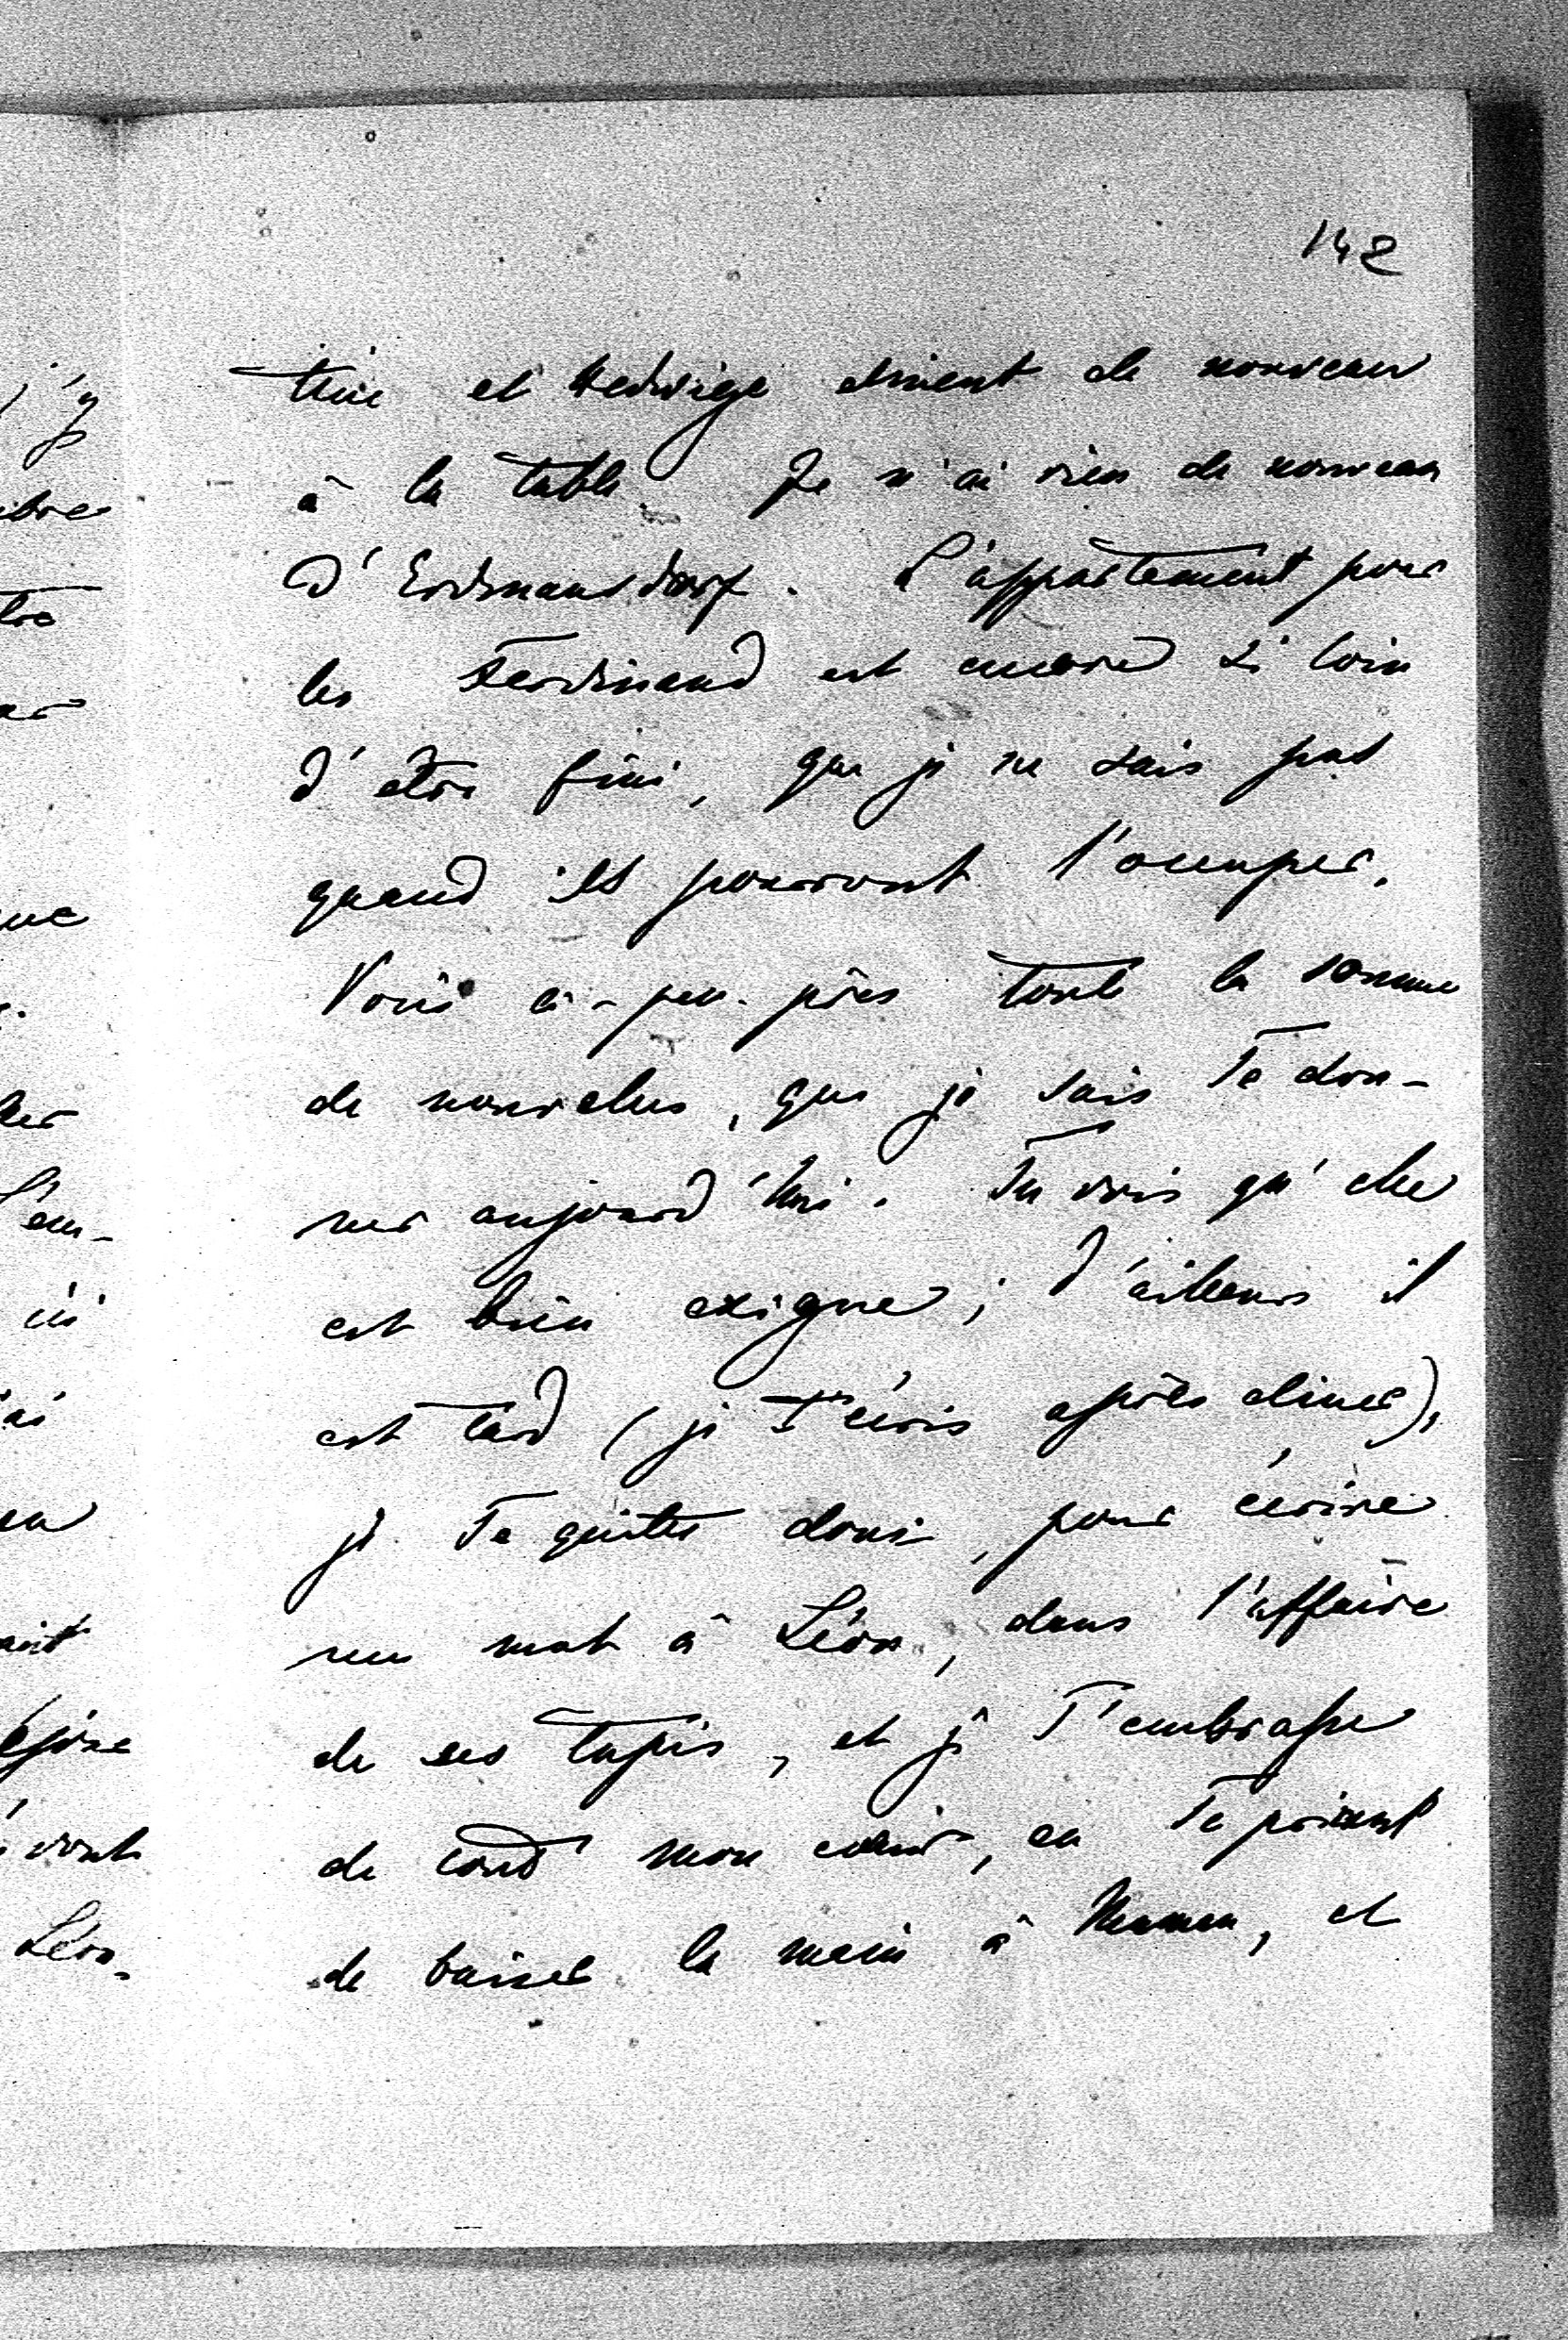 142
tine et Hedwige dinent de nouveau
à la table. Je n'ai rien de nouveau
d'Erdmansdorf. L'appartement pour
les Ferdinand est encore si loin
d'être fini, que je ne sais pas
quand ils pourront l'occuper.
Voici à-peu-près toute la somme
de nouvelles, que je sais Te don-
ner aujourd'hui. Tu vois qu'elle
est bien exigue; d'ailleurs il
est tard (je T'écris après diner),
je Te quitte donc, pour écrire
un mot à Léon, dans l'affaire
de ses tapis, et je T'embrasse
de tout mon coeur, en Te priant
de baiser la main à Maman, et